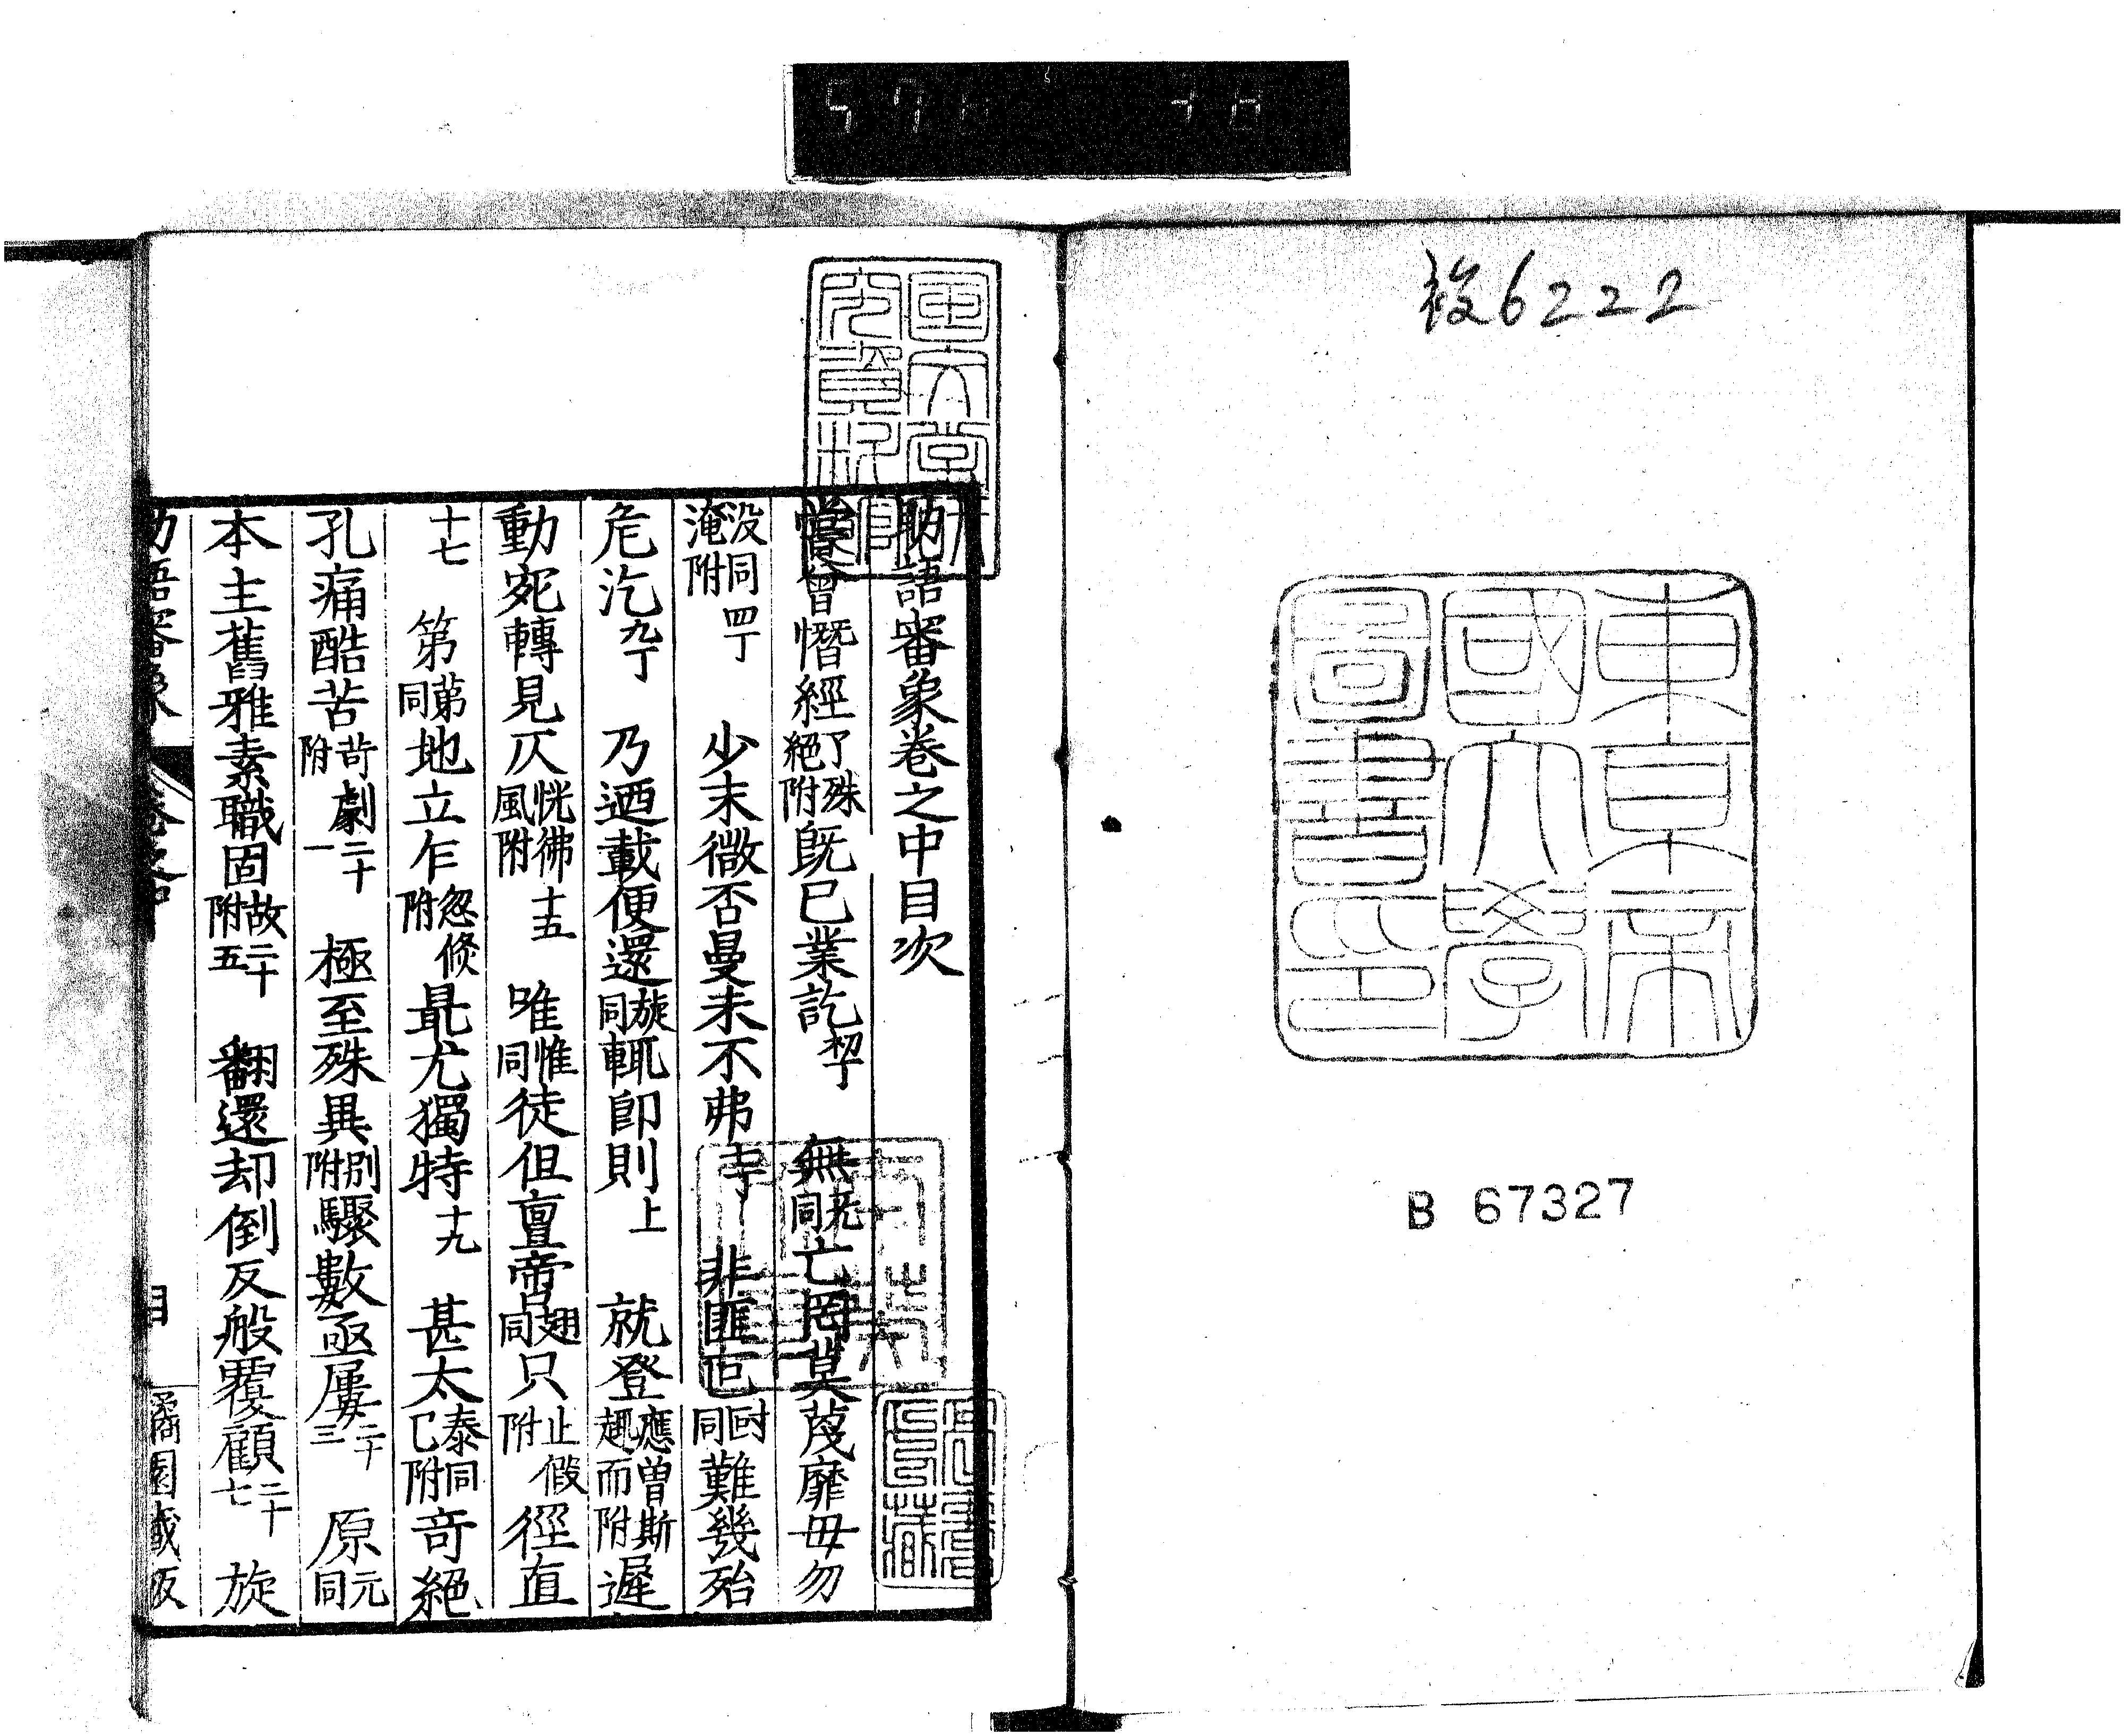 複6222
東京帝
國大學
圖書印
B 67327
助語審象卷之中目次
嘗曾憯經了殊絕附既已業訖初丁 無无同亡罔莫蔑靡毋勿
沒同淹附四丁 少末微否曼未不弗七丁 非匪叵同難幾殆
危汔九丁 乃迺載便還旋同輒即則上 就登應曾斯趣而附遲
動宛轉見仄恍彿風附十五 唯惟同徒但亶啻翅同只止假附徑直
十七 第苐同地立乍忽倏附最尤獨特十九 甚太泰同已附奇絕
孔痛酷苦苛劇附二十一 極至殊異別附驟數亟屢二十三 原元同
本主舊雅素職固故附二十五 翻還却倒反般覆顧二十七 旋
助語審象 卷之中 目